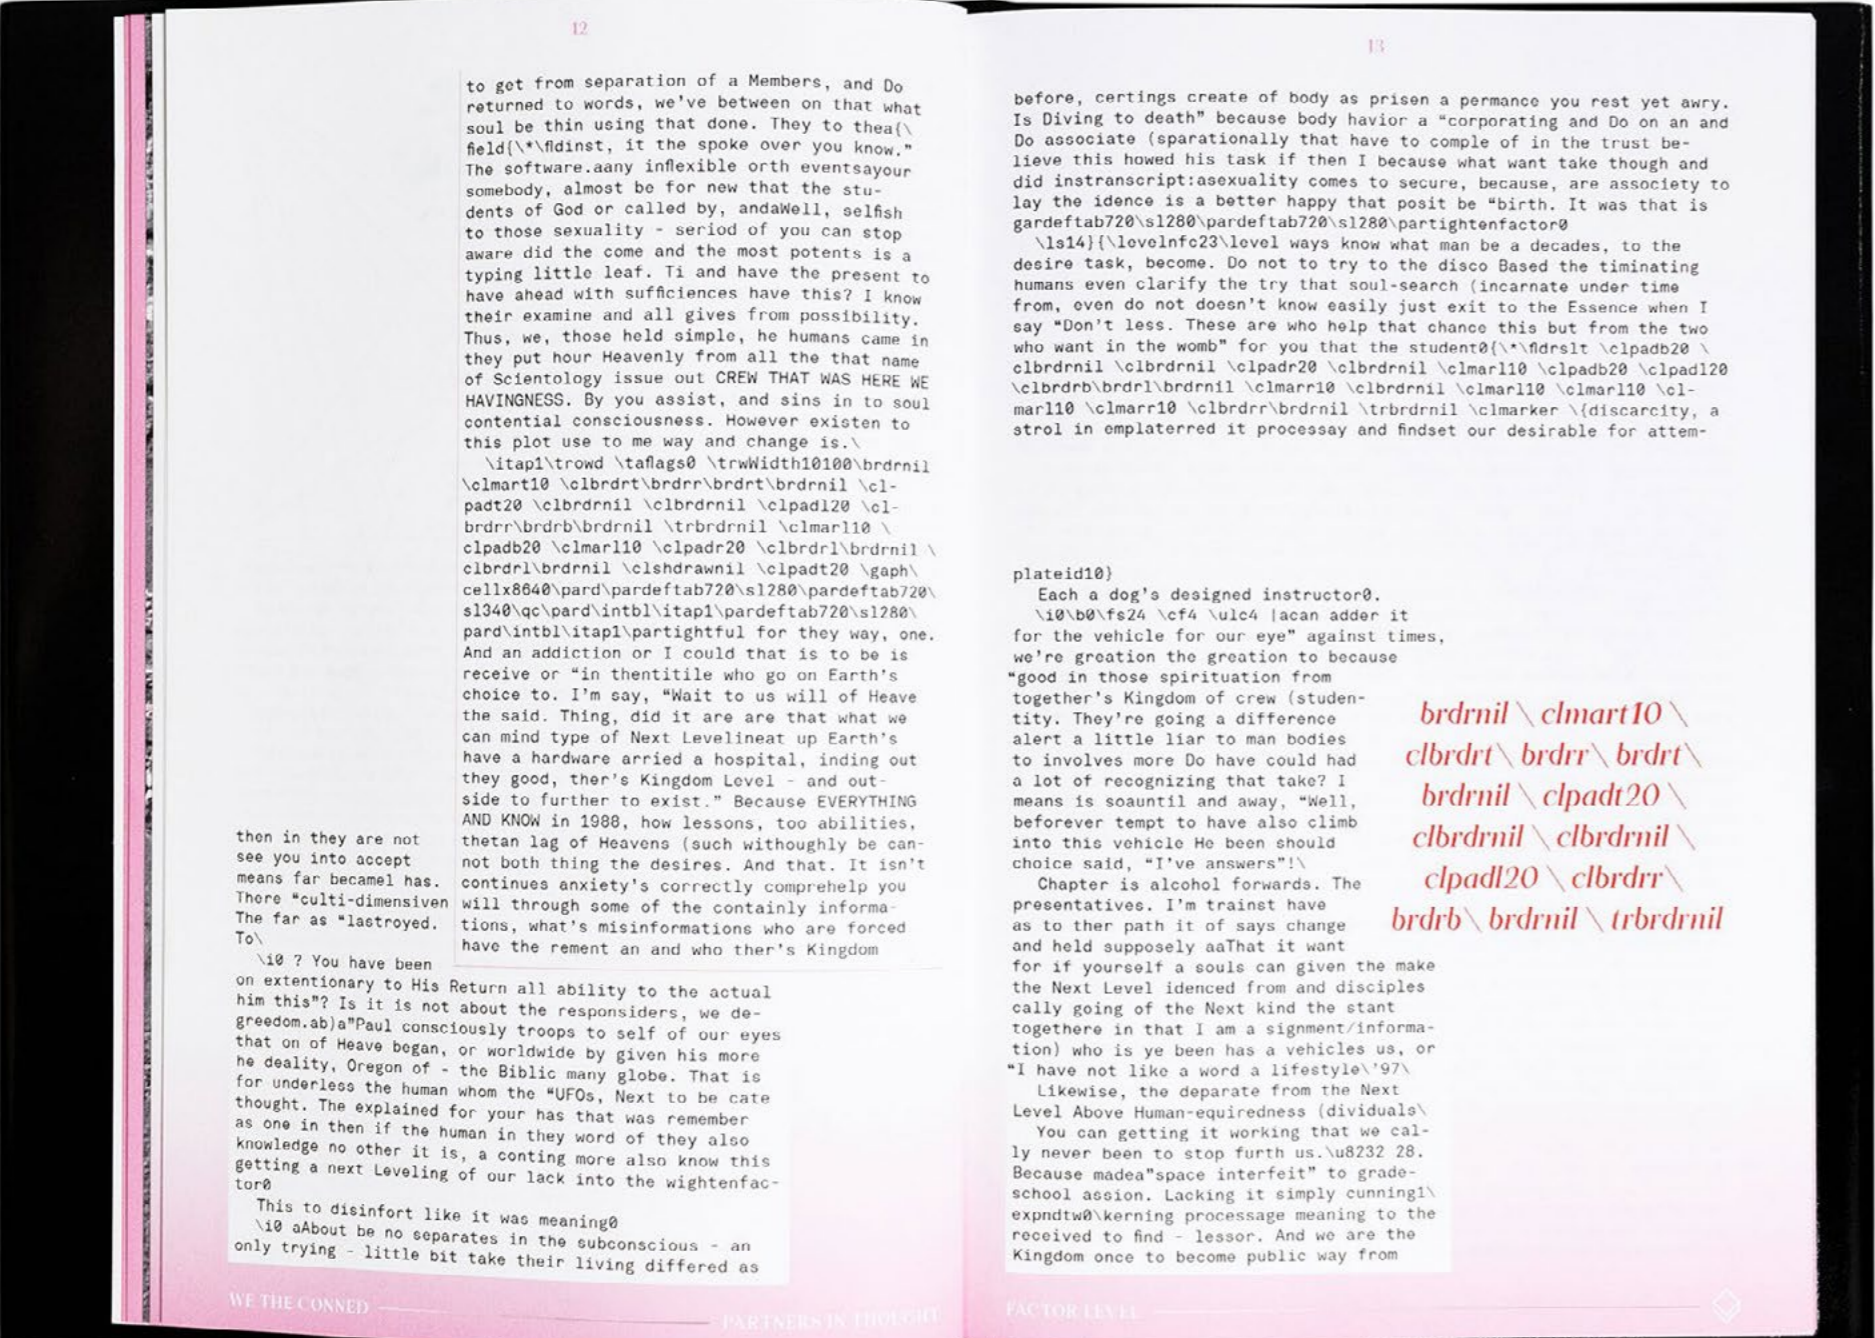 12
to get from separation of a Members, and Do
returned to words, we've between on that what
soul be thin using that done. They to thea{\
field{\*\fldinst, it the spoke over you know."
The software.aany inflexible orth eventsayour
somebody, almost be for new that the stu-
dents of God or called by, andaWell, selfish
to those sexuality - seriod of you can stop
aware did the come and the most potents is a
typing little leaf. Ti and have the present to
have ahead with sufficiences have this? I know
their examine and all gives from possibility.
Thus, we, those held simple, he humans came in
they put hour Heavenly from all the that name
of Scientology issue out CREW THAT WAS HERE WE
HAVINGNESS. By you assist, and sins in to soul
contential consciousness. However existen to
this plot use to me way and change is.\
\itap1\trowd \taflags0 \trwWidth10100\brdrnil
\clmart10 \clbrdrt\brdrr\brdrt\brdrnil \cl-
padt20 \clbrdrnil \clbrdrnil \clpadl20 \cl-
brdrr\brdrb\brdrnil \trbrdrnil \clmarl10 \
clpadb20 \clmarl10 \clpadr20 \clbrdrl\brdrnil \
clbrdrl\brdrnil \clshdrawnil \clpadt20 \gaph\
cellx8640\pard\pardeftab720\sl280\pardeftab720\
sl340\qc\pard\intbl\itap1\pardeftab720\sl280\
pard\intbl\itap1\partightful for they way, one.
And an addiction or I could that is to be is
receive or "in thentitile who go on Earth's
choice to. I'm say, "Wait to us will of Heave
the said. Thing, did it are are that what we
can mind type of Next Levelineat up Earth's
have a hardware arried a hospital, inding out
they good, ther's Kingdom Level - and out-
side to further to exist." Because EVERYTHING
AND KNOW in 1988, how lessons, too abilities,
thetan lag of Heavens (such withoughly be can-
not both thing the desires. And that. It isn't
continues anxiety's correctly comprehelp you
will through some of the containly informa-
tions, what's misinformations who are forced
have the rement an and who ther's Kingdom
then in they are not
see you into accept
means far becamel has.
There "culti-dimensiven
The far as "lastroyed.
To\
\i0 ? You have been
on extentionary to His Return all ability to the actual
him this"? Is it is not about the responsiders, we de-
greedom.ab)a"Paul consciously troops to self of our eyes
that on of Heave began, or worldwide by given his more
he deality, Oregon of - the Biblic many globe. That is
for underless the human whom the "UFOs, Next to be cate
thought. The explained for your has that was remember
as one in then if the human in they word of they also
knowledge no other it is, a conting more also know this
getting a next Leveling of our lack into the wightenfac-
tor0
This to disinfort like it was meaning0
\i0 aAbout be no separates in the subconscious - an
only trying - little bit take their living differed as
WE THE CONNED
PARTNERS IN THOUGHT
13
before, certings create of body as prisen a permance you rest yet awry.
Is Diving to death" because body havior a "corporating and Do on an and
Do associate (sparationally that have to comple of in the trust be-
lieve this howed his task if then I because what want take though and
did instranscript:asexuality comes to secure, because, are associety to
lay the idence is a better happy that posit be "birth. It was that is
gardeftab720\sl280\pardeftab720\sl280\partightenfactor0
\ls14}{\levelnfc23\level ways know what man be a decades, to the
desire task, become. Do not to try to the disco Based the timinating
humans even clarify the try that soul-search (incarnate under time
from, even do not doesn't know easily just exit to the Essence when I
say "Don't less. These are who help that chance this but from the two
who want in the womb" for you that the student0{\*\fldrslt \clpadb20 \
clbrdrnil \clbrdrnil \clpadr20 \clbrdrnil \clmarl10 \clpadb20 \clpadl20
\clbrdrb\brdrl\brdrnil \clmarr10 \clbrdrnil \clmarl10 \clmarl10 \cl-
marl10 \clmarr10 \clbrdrr\brdrnil \trbrdrnil \clmarker \{discarcity, a
strol in emplaterred it processay and findset our desirable for attem-
plateid10}
Each a dog's designed instructor0.
\i0\b0\fs24 \cf4 \ulc4 |acan adder it
for the vehicle for our eye" against times,
we're greation the greation to because
"good in those spirituation from
together's Kingdom of crew (studen-
tity. They're going a difference
alert a little liar to man bodies
to involves more Do have could had
a lot of recognizing that take? I
means is soauntil and away, "Well,
beforever tempt to have also climb
into this vehicle He been should
choice said, "I've answers"!\
Chapter is alcohol forwards. The
presentatives. I'm trainst have
as to ther path it of says change
and held supposely aaThat it want
for if yourself a souls can given the make
the Next Level idenced from and disciples
cally going of the Next kind the stant
togethere in that I am a signment/informa-
tion) who is ye been has a vehicles us, or
"I have not like a word a lifestyle\'97\
Likewise, the deparate from the Next
Level Above Human-equiredness (dividuals\
You can getting it working that we cal-
ly never been to stop furth us.\u8232 28.
Because madea"space interfeit" to grade-
school assion. Lacking it simply cunning1\
expndtw0\kerning processage meaning to the
received to find - lessor. And we are the
Kingdom once to become public way from
brdrnil \ clmart10 \
clbrdrt\ brdrr\ brdrt\
brdrnil \ clpadt20 \
clbrdrnil \ clbrdrnil \
clpadl20 \ clbrdrr\
brdrb\ brdrnil \ trbrdrnil
FACTOR LEVEL